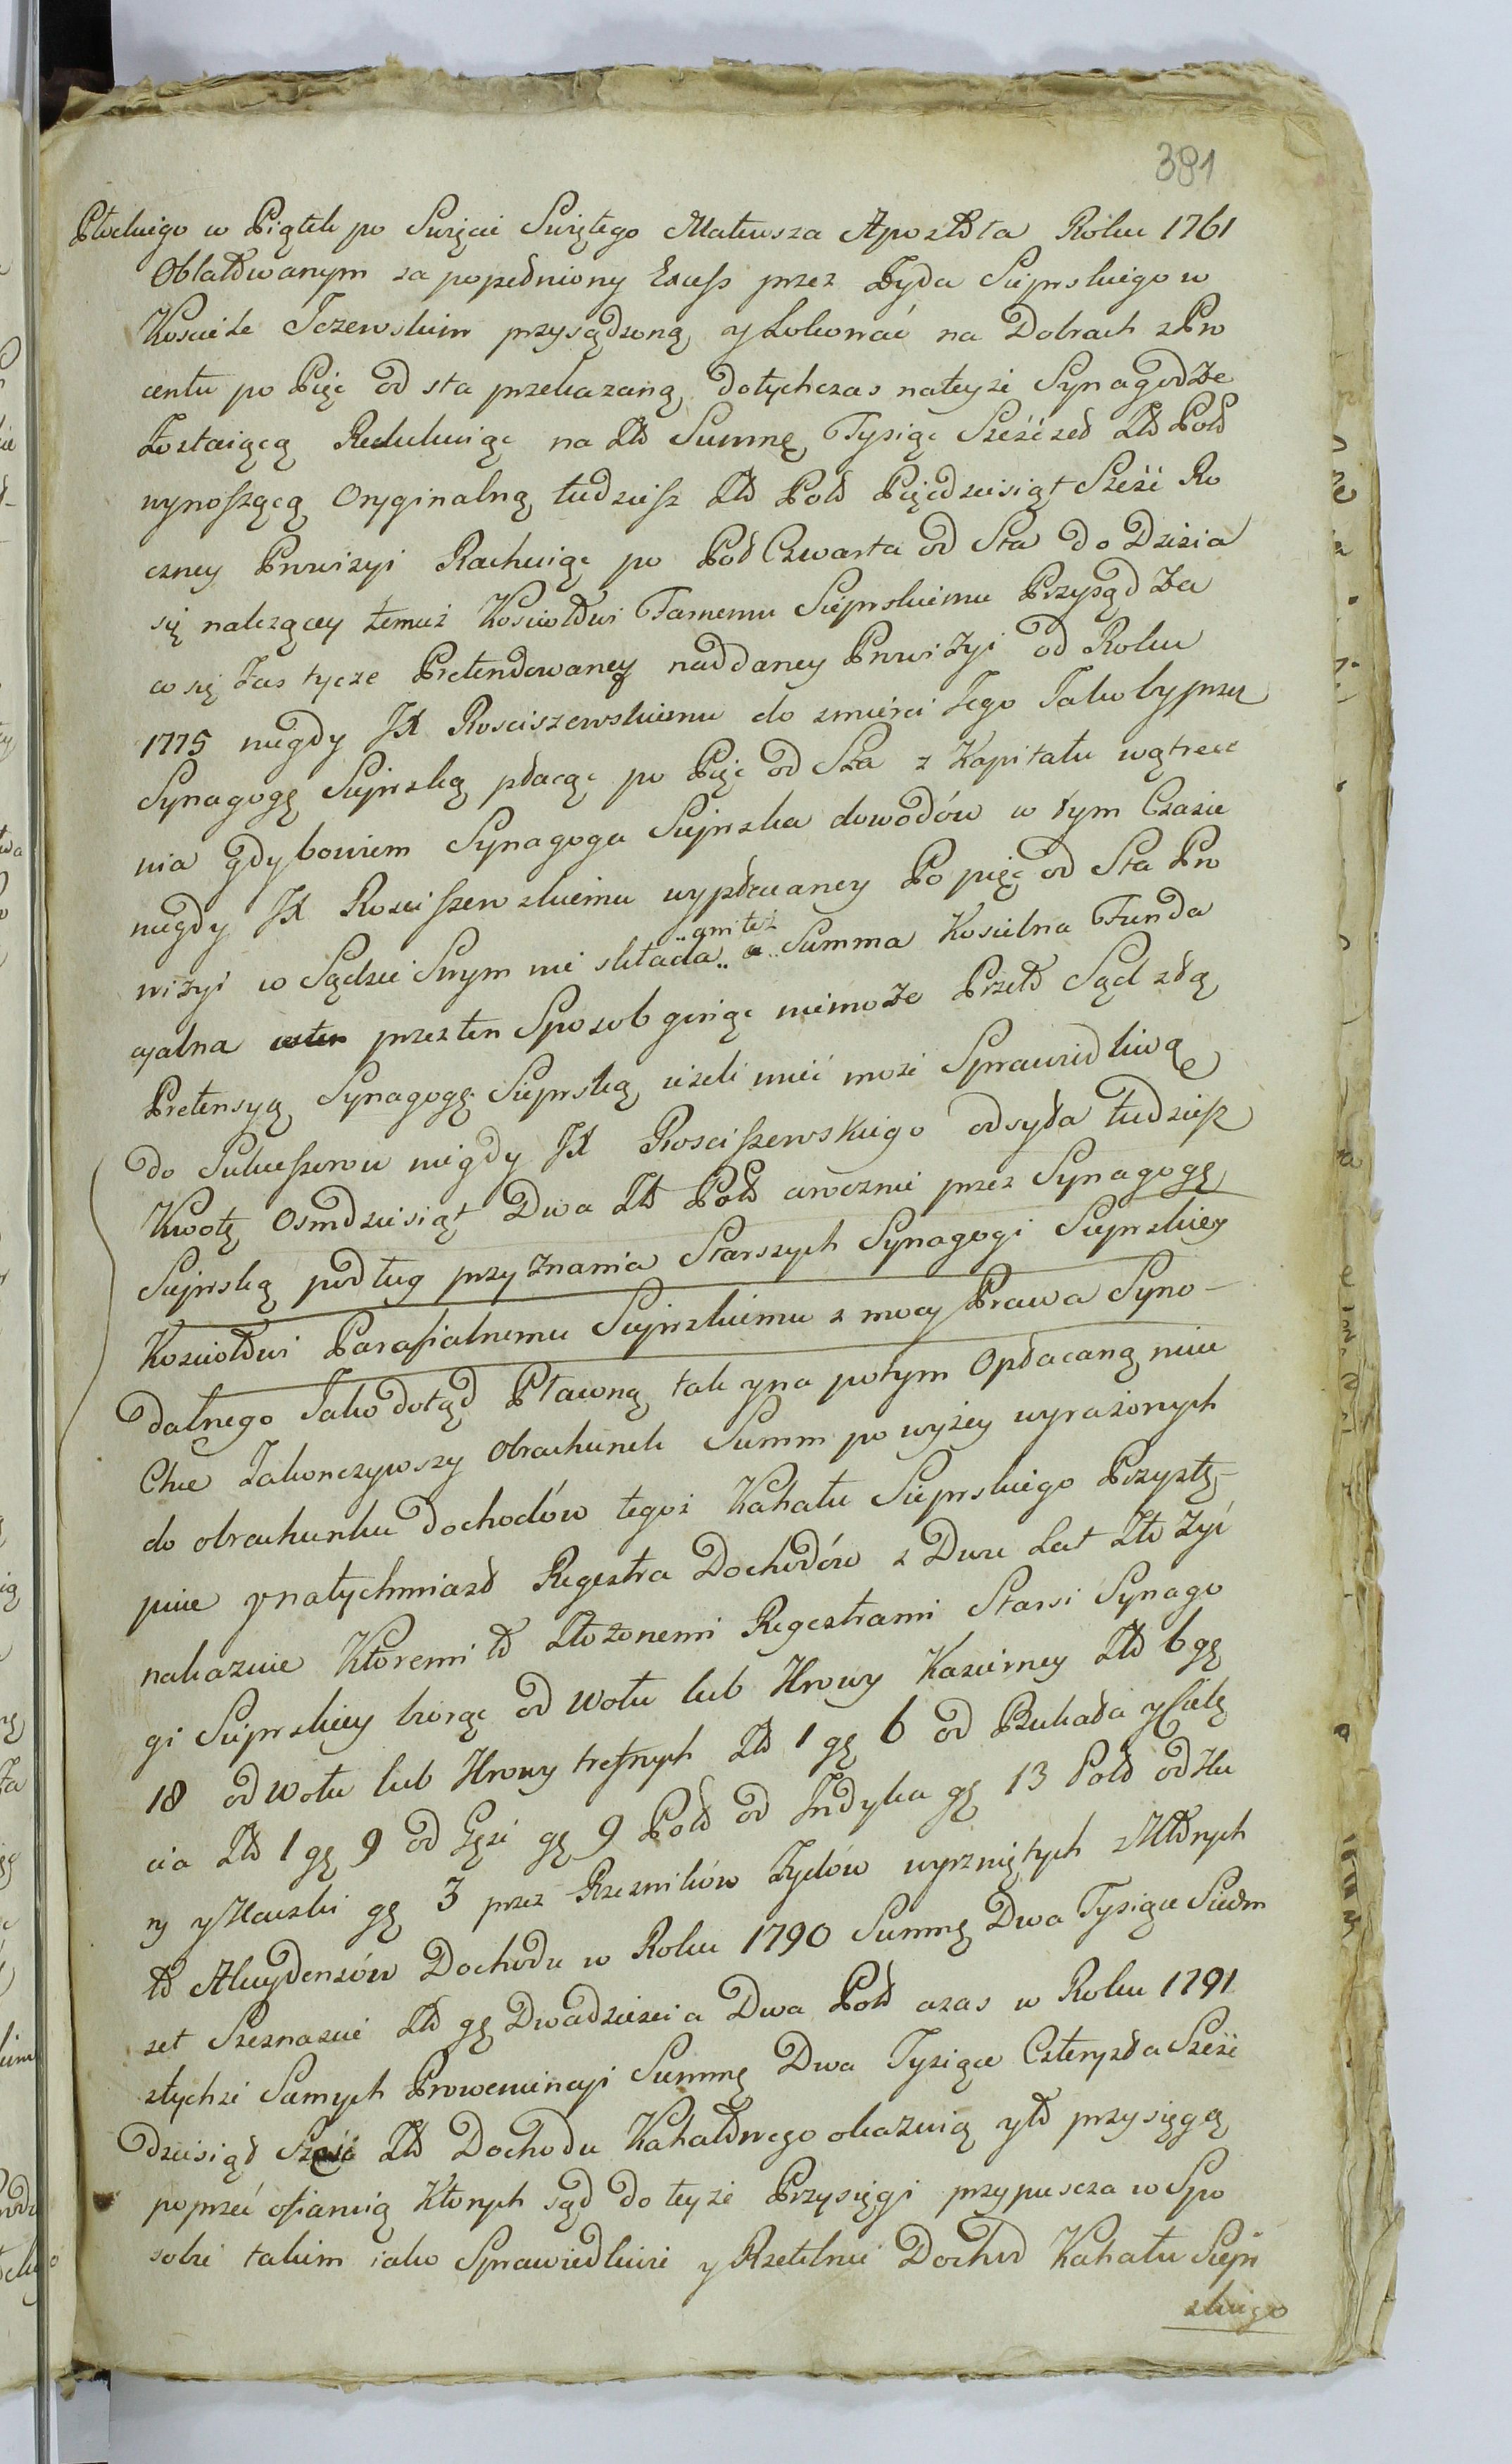 381
Płockiego w Piątek po Swięcie Swiętego Mateusza Apostoła Roku 1761
Oblatowanym za popełniony Excess przez Żyda Sieprskiego w
Kosciele Tczewskim przysądzoną y Lokować na Dobrach z Pro
centu po Pięc od sta przekazaną dotychczas na teyże Synagodze
Zostaiącą Redukuiąc na Zło Summę Tysiąc Sześćzet Zło Pold
wynoszącą Oryginalną tudziesz Zło Pold Pięcdziesiąt Sześć Ro
czney Prowizyi Rachuiąc po Poł Czwarta od Sta do Dzisia
się należącey temuż Kosciołowi Farnemu Sieprskiemu Przysądza
co się Zas tycze Pretendowaney naddaney Prowizyi od Roku
1775 niegdy JX Rosciszewskiemu do smierci Jego Jakoby przez
Synagogę Sieprską płacąc po Pięc od Sta z Kapitału wątrece
nia gdy bowiem Synagoga Sieprska dowodów w tym Czasie
niegdy JX Rosciszewskiemu wypłacaney Po pięc od Sta Pro
wizyi w Sądzie Swym nie składa ani też Summa Koscielna Funda
cyalna przez ten Sposob ginąc niemoże Przeto Sąd z tą
Pretensyą Synagogę Sieprską ieżeli mieć może Sprawiedliwą
do Sukcessorow niegdy JX Rosciszewskiego odsyła tudziesz
Kwotę Osmdziesiąt Dwa Zło Pold corocznie przez Synagogę
Sieprską podług przyznania Starszych Synagogi Sieprskiey
Kosciołowi Parafialnemu Sieprskiemu z mocy Prawa Syno-
dalnego Jako dotąd Płacwną tak y na potym Opłacaną miec
Chce Zakonczywszy Obrachunek Summ po wyżey wyrażonych
do obrachunku dochodów tegoż Kahału Sieprskiego Przystę-
puie y natychmiast Regestra Dochodów z Dwu Lat Zło żyć
nakazuie Ktoremi to Złożonemi Regestrami Starsi Synago
gi Sieprskiey biorąc od wołu lub Krowy Koszerney Zło 6 gę
18 od wołu lub Krowy trefnych Zło 1 gę 6 od Bukała y Cielę
cia Zło 1 gę 9 od Gęsi gę 9 Pold od Indyka gę 13 Pold od Ku
ry y Kaczki gę 3 przez Rzezników Żydów wyrzniętych z Których
to Akcydensów Dochodu w Roku 1790 Summę Dwa Tysiące Siedm
set Szesnascie Zło gę Dwadziescia Dwa Pold a zas w Roku 1791
z tychże Samych Prowenienyi Summę Dwa Tysiące Czterysta Sześć
dziesiąt Sześć Zło Dochodu Kahałowego okazuią y to przysięgą
poprzeć ofiaruią Ktorych sąd do teyże Przysięgi przypuscza w Spo
sobie takim iako Sprawiedliwie y Rzetelnie Dochod Kahału Siepr
skiego